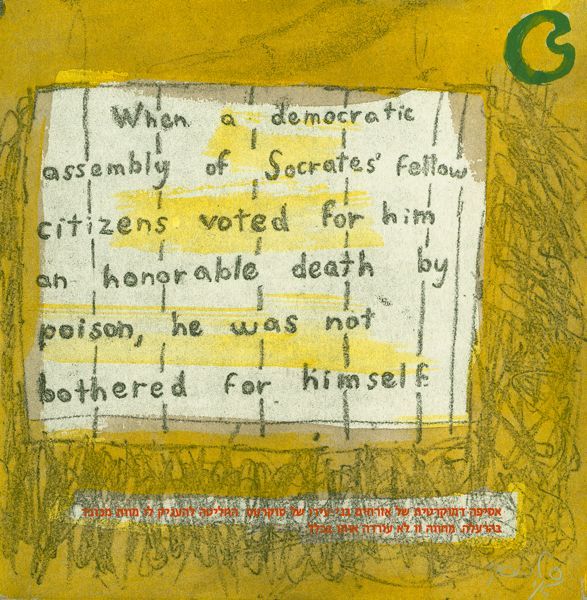 When a democratic
assembly of Socrates' fellow
citizens voted for him
an honorable death by
poison, he was not
bothered for himself.
אסיפה דמוקרטית של אזרחים בני עירו של סוקרטס החליטה להעניק לו מוות מכובד
בהרעלה. מחווה זו לא עודדה אותו בכלל